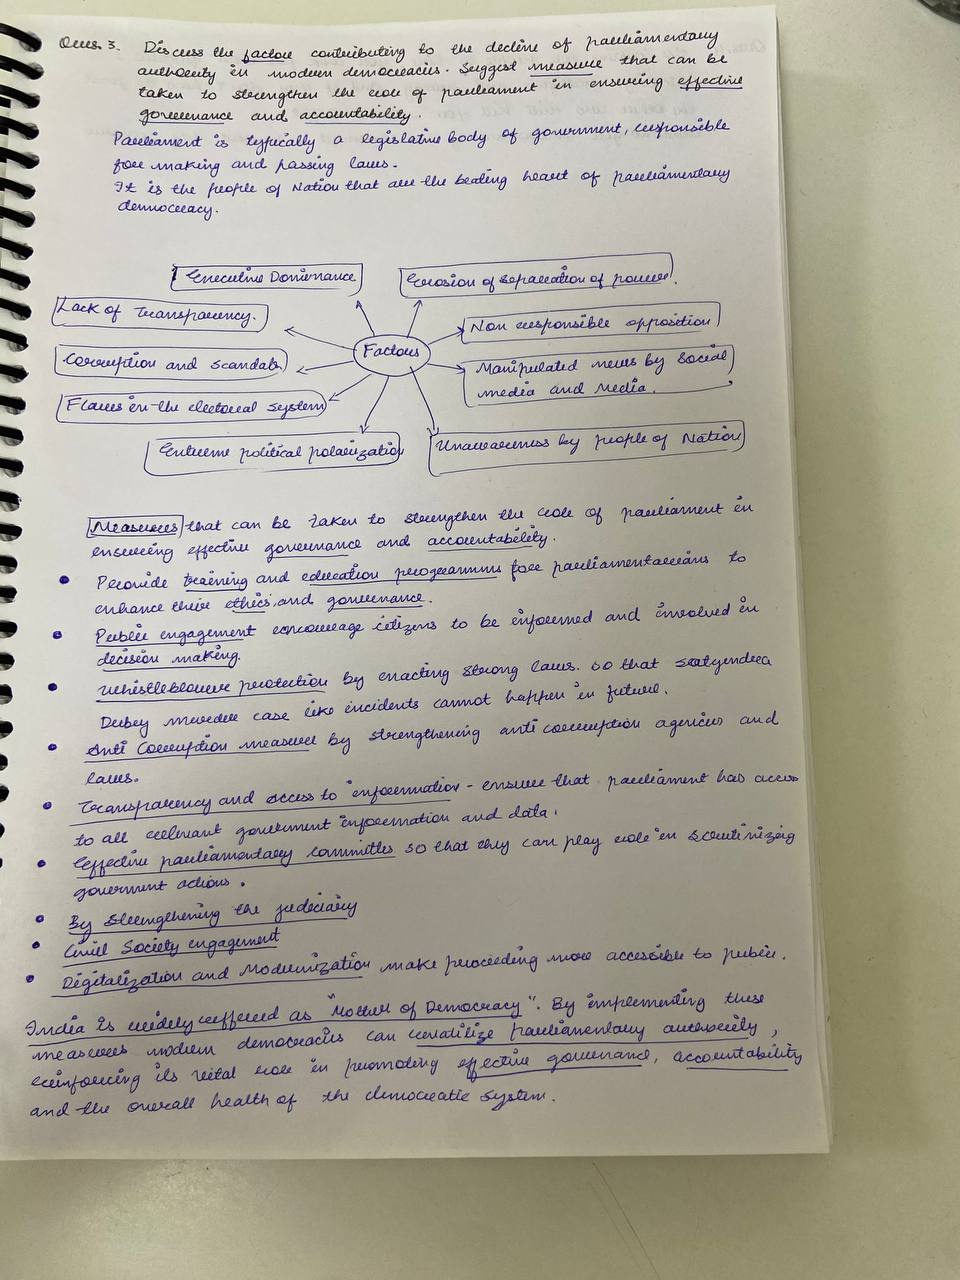 Ques. 3. Discuss the factors contributing to the decline of parliamentary
authority in modern democracies. Suggest measures that can be
taken to strengthen the role of parliament in ensuring effective
governance and accountability.
Parliament is typically a legislative body of government, responsible
for making and passing laws.
It is the people of Nation that are the beating heart of parliamentary
democracy.
Executive Dominance
Erosion of separation of power.
Lack of Transparency.
Non responsible opposition
Factors
Corruption and scandals
Manipulated news by social
media and Media.
Flaws in the electoral system
Extreme political polarization
Unawareness by people of Nation
Measures that can be taken to strengthen the role of parliament in
ensuring effective governance and accountability.
• Provide training and education programmes for parliamentarians to
enhance their ethics, and governance.
• Public engagement encourage citizens to be informed and involved in
decision making.
• Whistleblower protection by enacting strong laws. so that satyendra
Dubey murder case like incidents cannot happen in future.
• Anti Corruption measures by strengthening anti corruption agencies and
laws.
• Transparency and access to information - ensure that parliament has access
to all relevant government information and data.
• Effective parliamentary committes so that they can play role in scrutinizing
goverment actions.
• By strengthening the judiciary
• Civil Society engagement
• Digitalization and Modernization make proceeding more accessible to public.
India is widely reffered as "Mother of Democracy". By implementing these
measures modern democracies can revitalize parliamentary authority,
reinforcing its vital role in promoting effective governance, accountability
and the overall health of the democratic system.